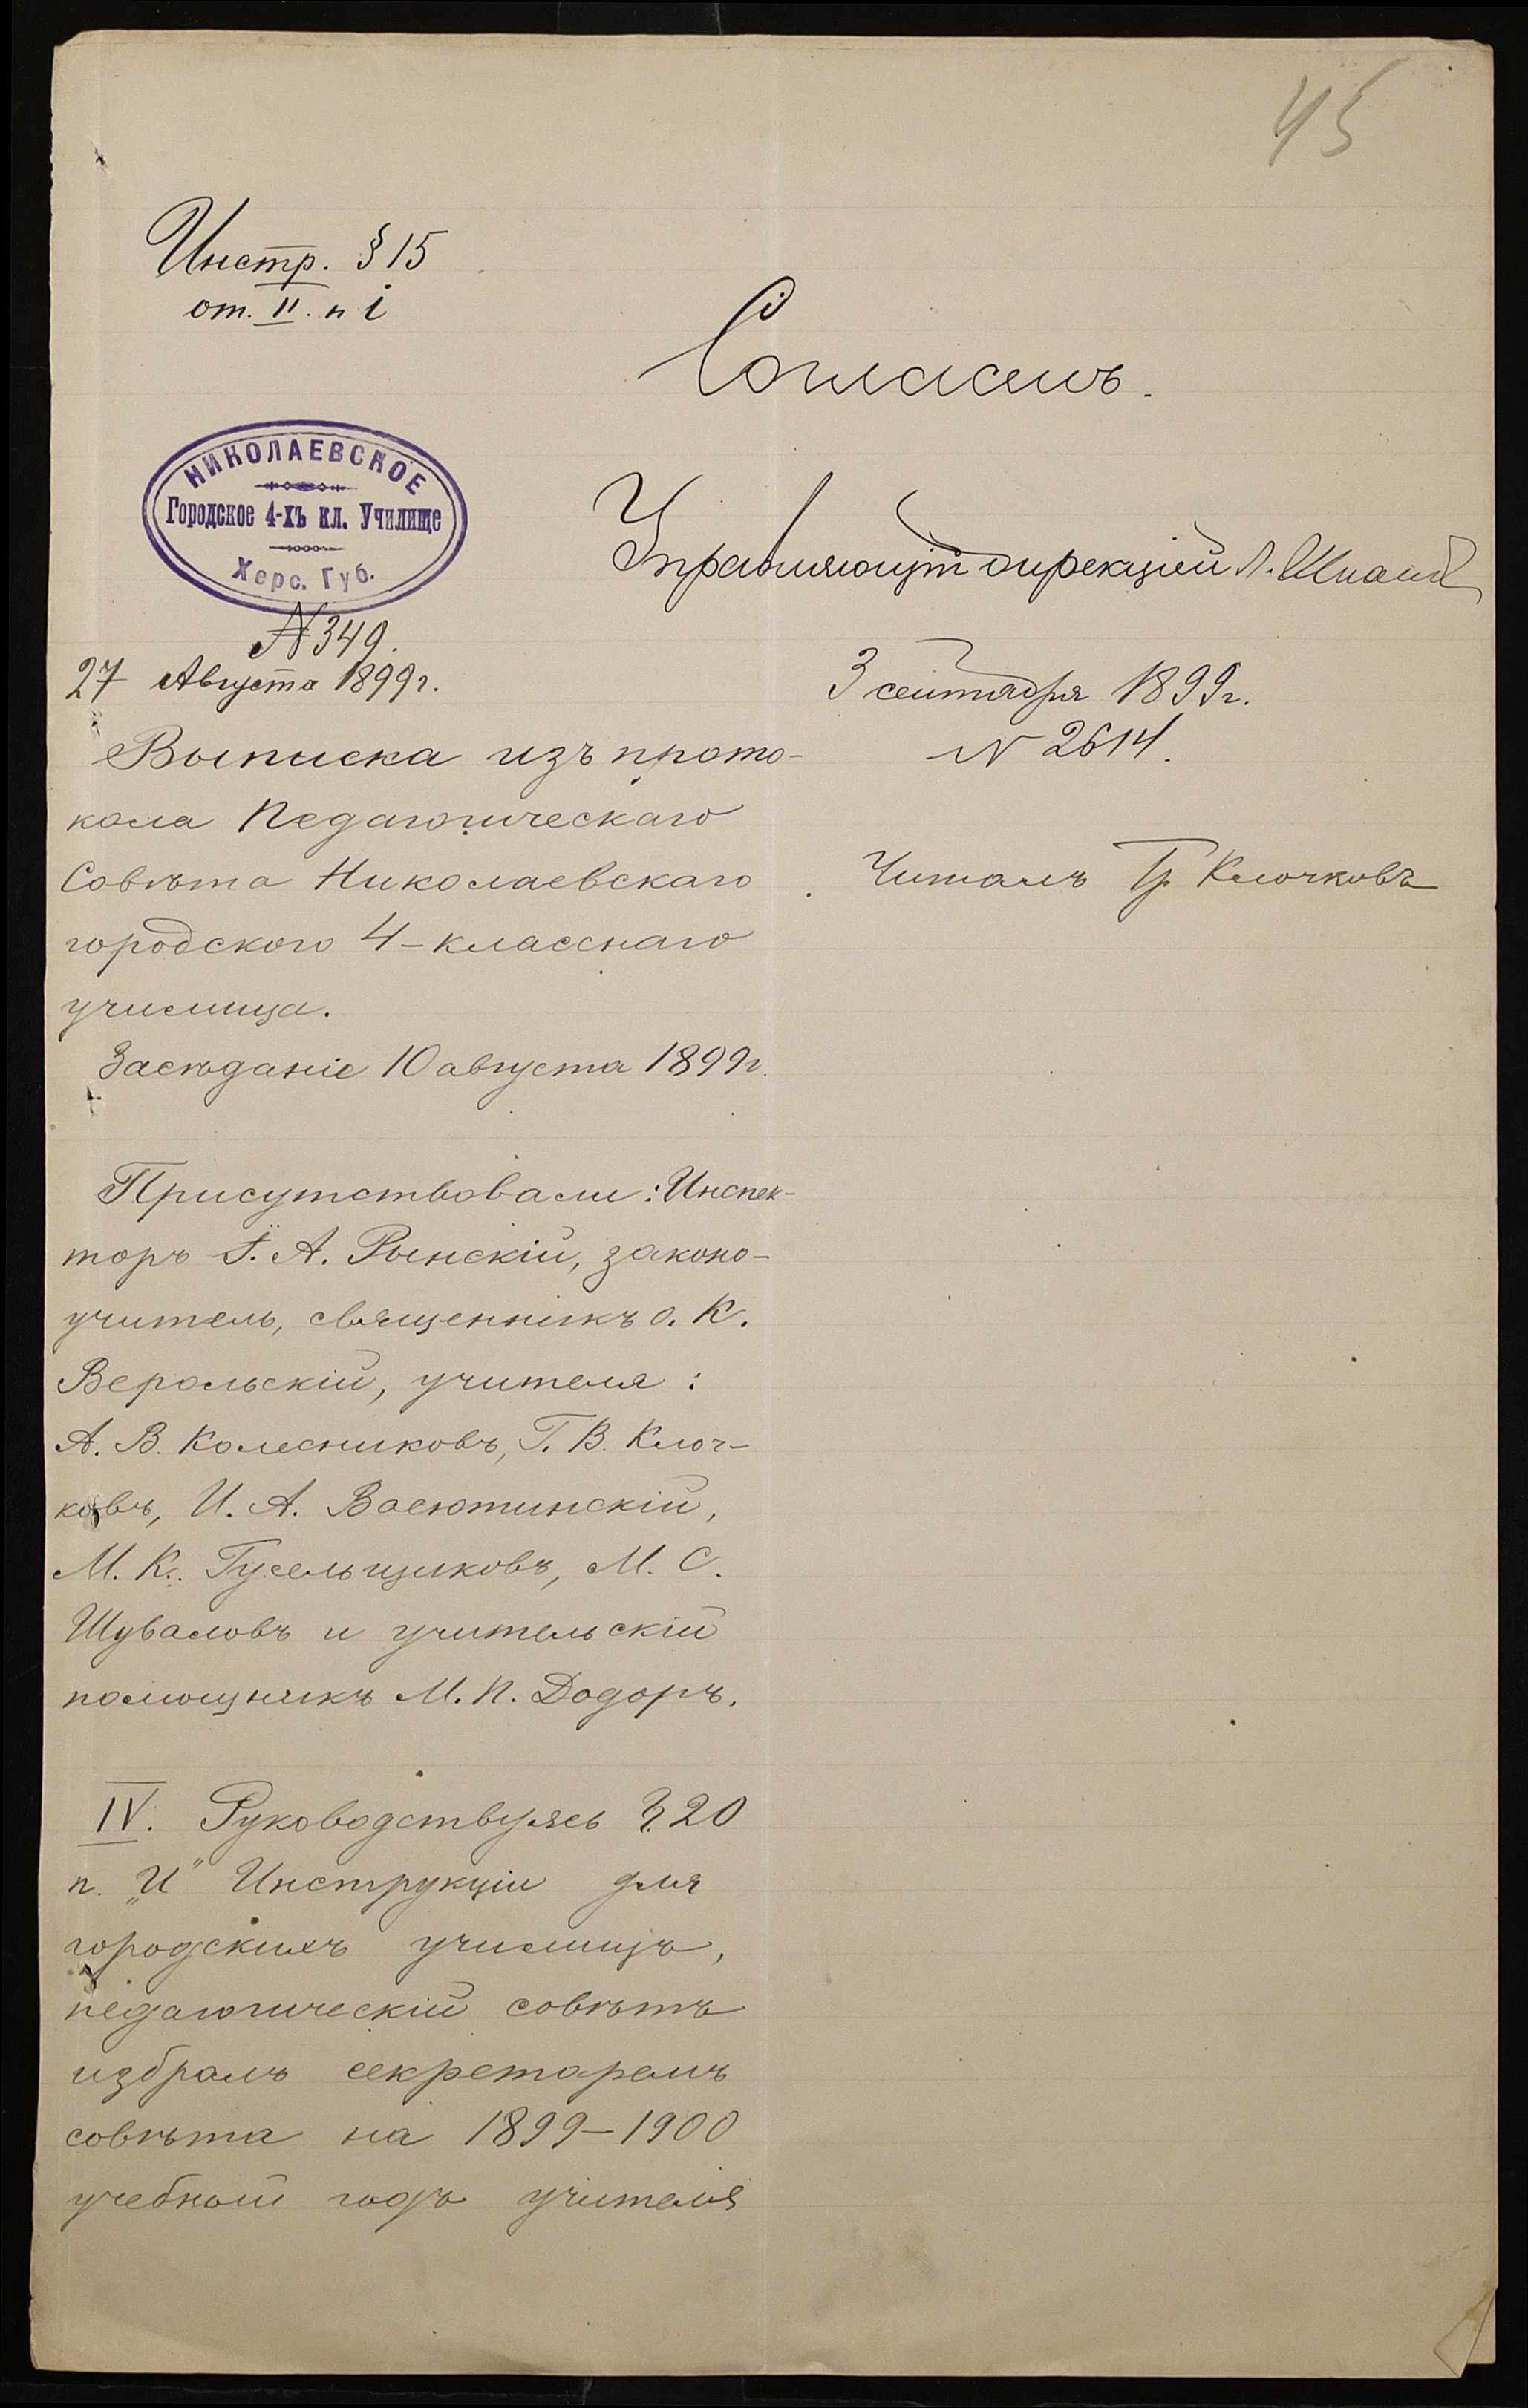 45
Инстр. § 15
от. II. п i
Согласенъ.
НИКОЛАЕВСКОЕ
Городское 4-хъ кл. Училище
Херс. Губ.
N 349.
27 Августа 1899 г.
Управляющій дирекціею
3 сентября 1899 г.
N 2614.
Читалъ Гр. Клочковъ
Выписка изъ прото-
кола Педагогическаго
Совѣта Николаевскаго
городского 4-класснаго
училища.
Засѣданіе 10 августа 1899 г.
Присутствовали: Инспек-
торъ А. Рынскій, законо-
учитель, священникъ о. К.
Верольскій, учителя:
А. В. Колесниковъ, Г. В. Клоч-
ковъ, И. А. Васютинскій,
М. К. Гусельщиковъ, М. С.
Шуваловъ и учительскій
помощникъ М. П. Додоръ.
IV. Руководствуясь § 20
п. „И" Инструкціи для
городскихъ училищъ,
педагогическій совѣтъ
избралъ секретаремъ
совѣта на 1899–1900
учебный годъ учителя